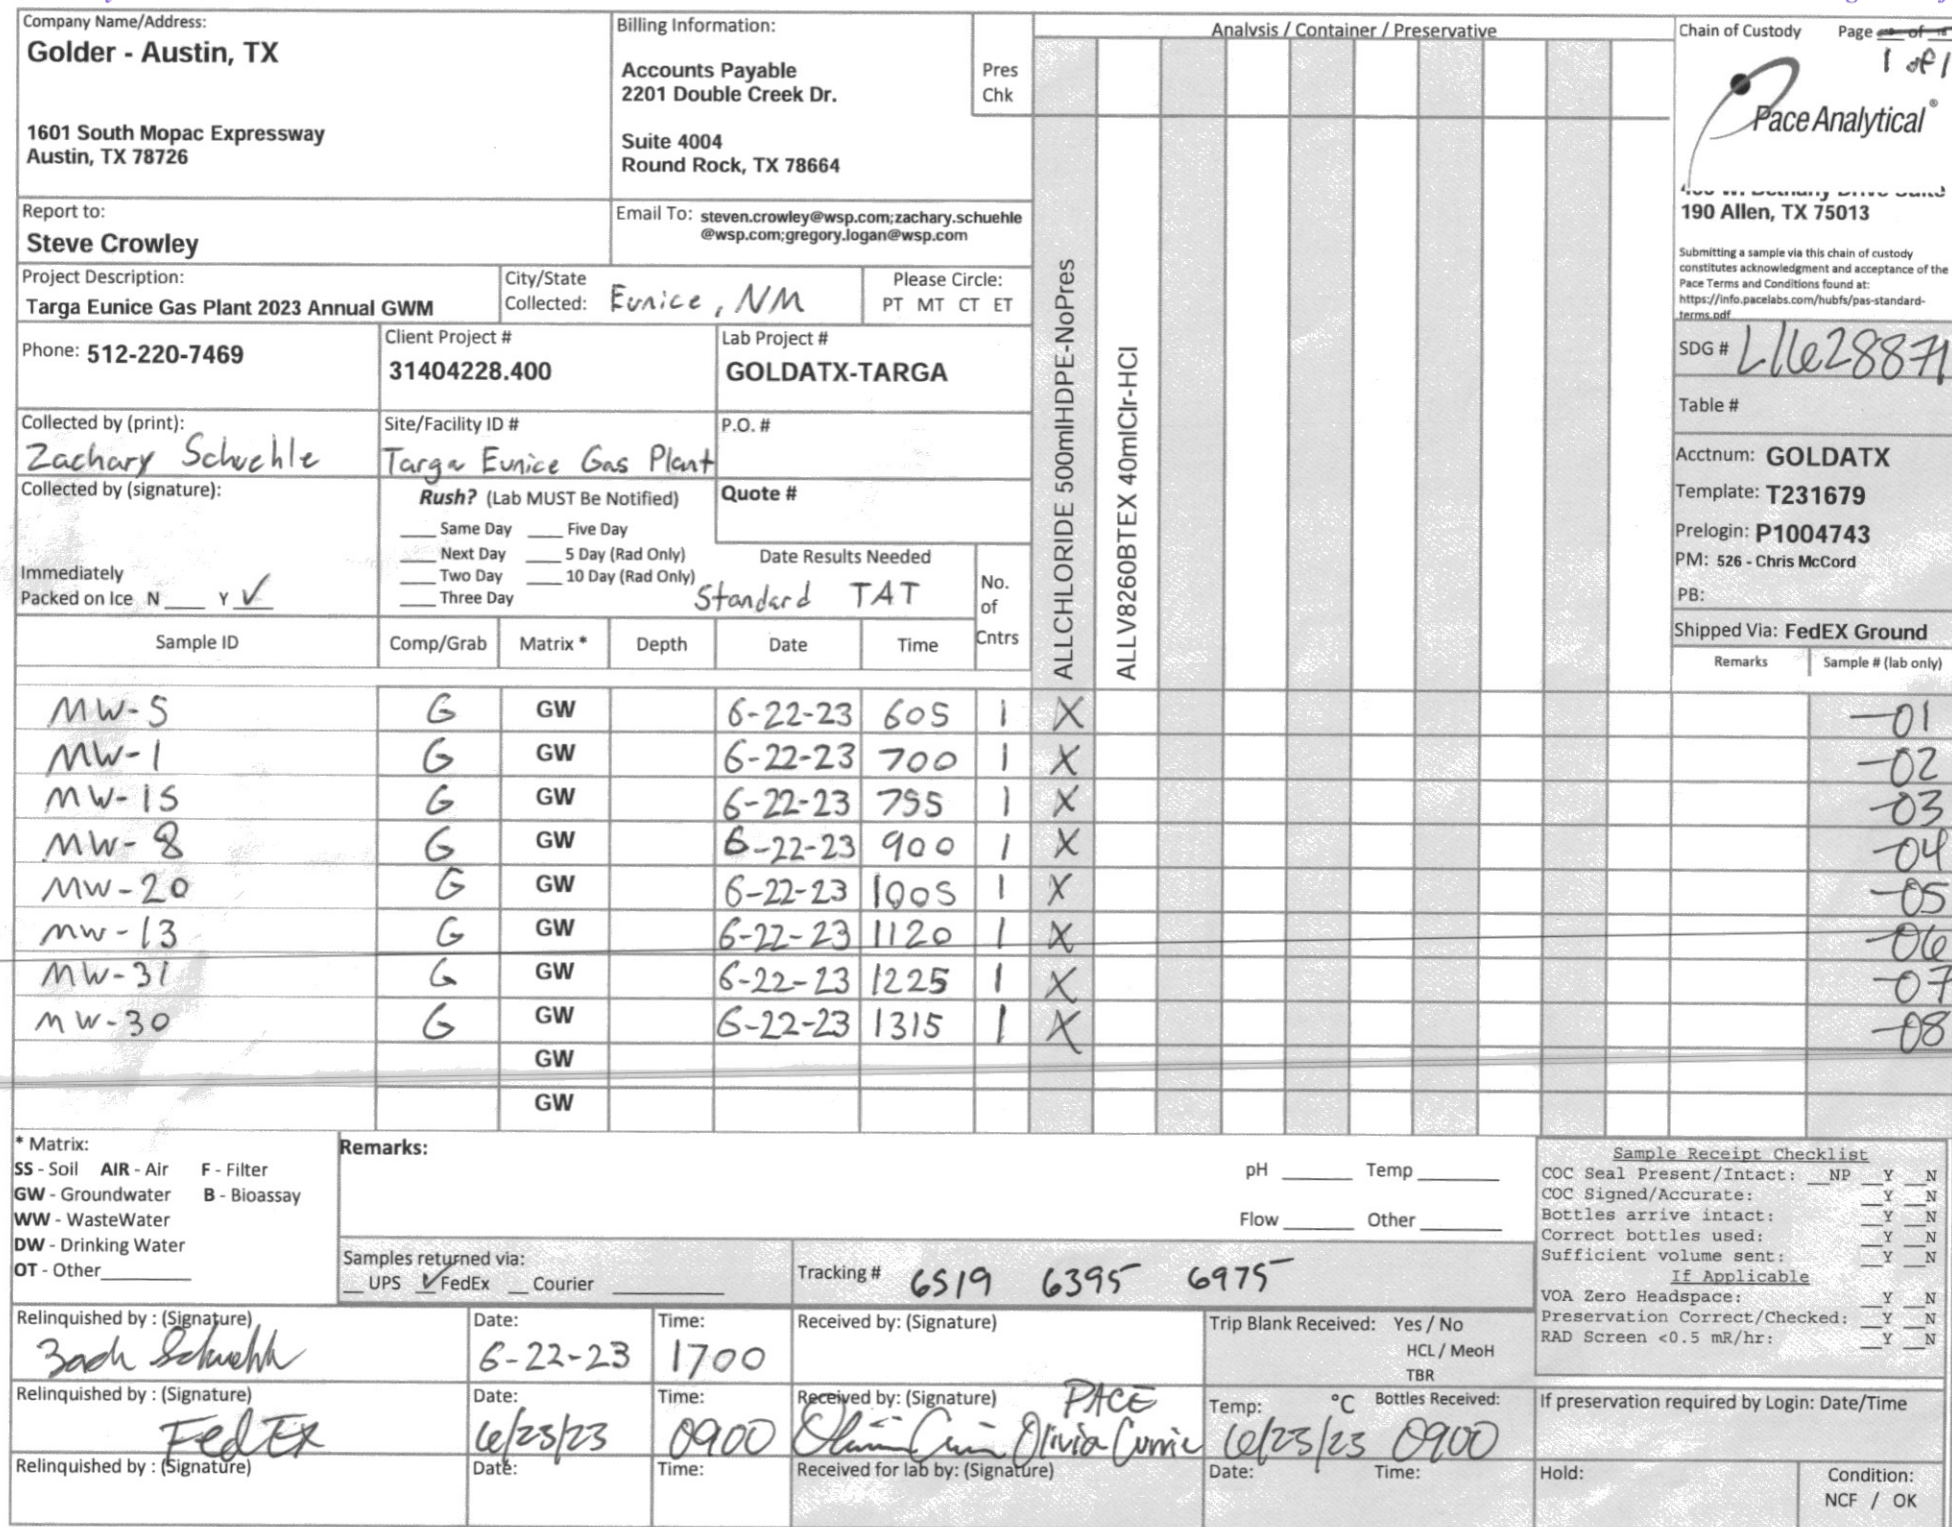 Company Name/Address:
Golder - Austin, TX
1601 South Mopac Expressway
Austin, TX 78726
Billing Information:
Accounts Payable
2201 Double Creek Dr.
Suite 4004
Round Rock, TX 78664
Pres
Chk
Analysis / Container / Preservative
Chain of Custody Page of
1 of 1
Pace Analytical®
190 Allen, TX 75013
Submitting a sample via this chain of custody
constitutes acknowledgment and acceptance of the
Pace Terms and Conditions found at:
https://info.pacelabs.com/hubfs/pas-standard-
terms.pdf
Report to:
Steve Crowley
Email To: steven.crowley@wsp.com;zachary.schuehle
@wsp.com;gregory.logan@wsp.com
Project Description:
Targa Eunice Gas Plant 2023 Annual GWM
City/State
Collected: Eunice, NM
Please Circle:
PT MT CT ET
Phone: 512-220-7469
Client Project #
31404228.400
Lab Project #
GOLDATX-TARGA
SDG # L1628871
Table #
Collected by (print):
Zachary Schuehle
Site/Facility ID #
Targa Eunice Gas Plant
P.O. #
Acctnum: GOLDATX
Template: T231679
Prelogin: P1004743
PM: 526 - Chris McCord
PB:
Shipped Via: FedEX Ground
Collected by (signature):
Rush? (Lab MUST Be Notified)
Same Day Five Day
Next Day 5 Day (Rad Only)
Two Day 10 Day (Rad Only)
Three Day
Quote #
Date Results Needed
Standard TAT
Immediately
Packed on Ice N Y ✓
No.
of
Cntrs
ALLCHLORIDE 500mlHDPE-NoPres
ALLV8260BTEX 40mlClr-HCl
Sample ID Comp/Grab Matrix * Depth Date Time Remarks Sample # (lab only)
MW-5 G GW 6-22-23 605 1 X -01
MW-1 G GW 6-22-23 700 1 X -02
MW-15 G GW 6-22-23 755 1 X -03
MW-8 G GW 6-22-23 900 1 X -04
MW-20 G GW 6-22-23 1005 1 X -05
MW-13 G GW 6-22-23 1120 1 X -06
MW-31 G GW 6-22-23 1225 1 X -07
MW-30 G GW 6-22-23 1315 1 X -08
GW
GW
* Matrix:
SS - Soil AIR - Air F - Filter
GW - Groundwater B - Bioassay
WW - WasteWater
DW - Drinking Water
OT - Other
Remarks:
pH Temp
Flow Other
Sample Receipt Checklist
COC Seal Present/Intact: NP Y N
COC Signed/Accurate: Y N
Bottles arrive intact: Y N
Correct bottles used: Y N
Sufficient volume sent: Y N
If Applicable
VOA Zero Headspace: Y N
Preservation Correct/Checked: Y N
RAD Screen <0.5 mR/hr: Y N
Samples returned via:
UPS ✓ FedEx Courier
Tracking # 6519 6395 6975
Relinquished by : (Signature)
Zach Schuehle
Date:
6-22-23
Time:
1700
Received by: (Signature)
Trip Blank Received: Yes / No
HCL / MeoH
TBR
Relinquished by : (Signature)
FedEx
Date:
6/23/23
Time:
0900
Received by: (Signature) PACE
Olivia Currie
Temp: °C Bottles Received:
6/23/23 0900
If preservation required by Login: Date/Time
Relinquished by : (Signature)
Date:
Time:
Received for lab by: (Signature)
Date: Time:
Hold:
Condition:
NCF / OK